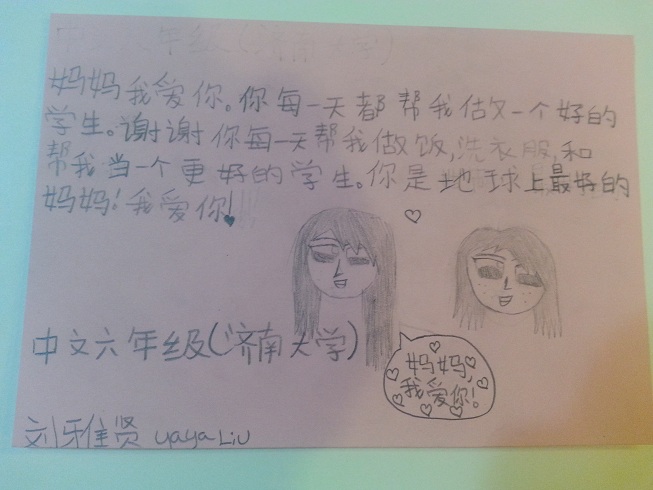 年级(济南大
妈妈我爱你。你每一天都帮我做一个好的
学生。谢谢你每一天帮我做饭,洗衣服,和
帮我当一个更好的学生。你是地球上最好的
妈妈!我爱你!
中文六年级(济南大学)
妈妈,
我爱你!
刘雅贤 yaya Liu